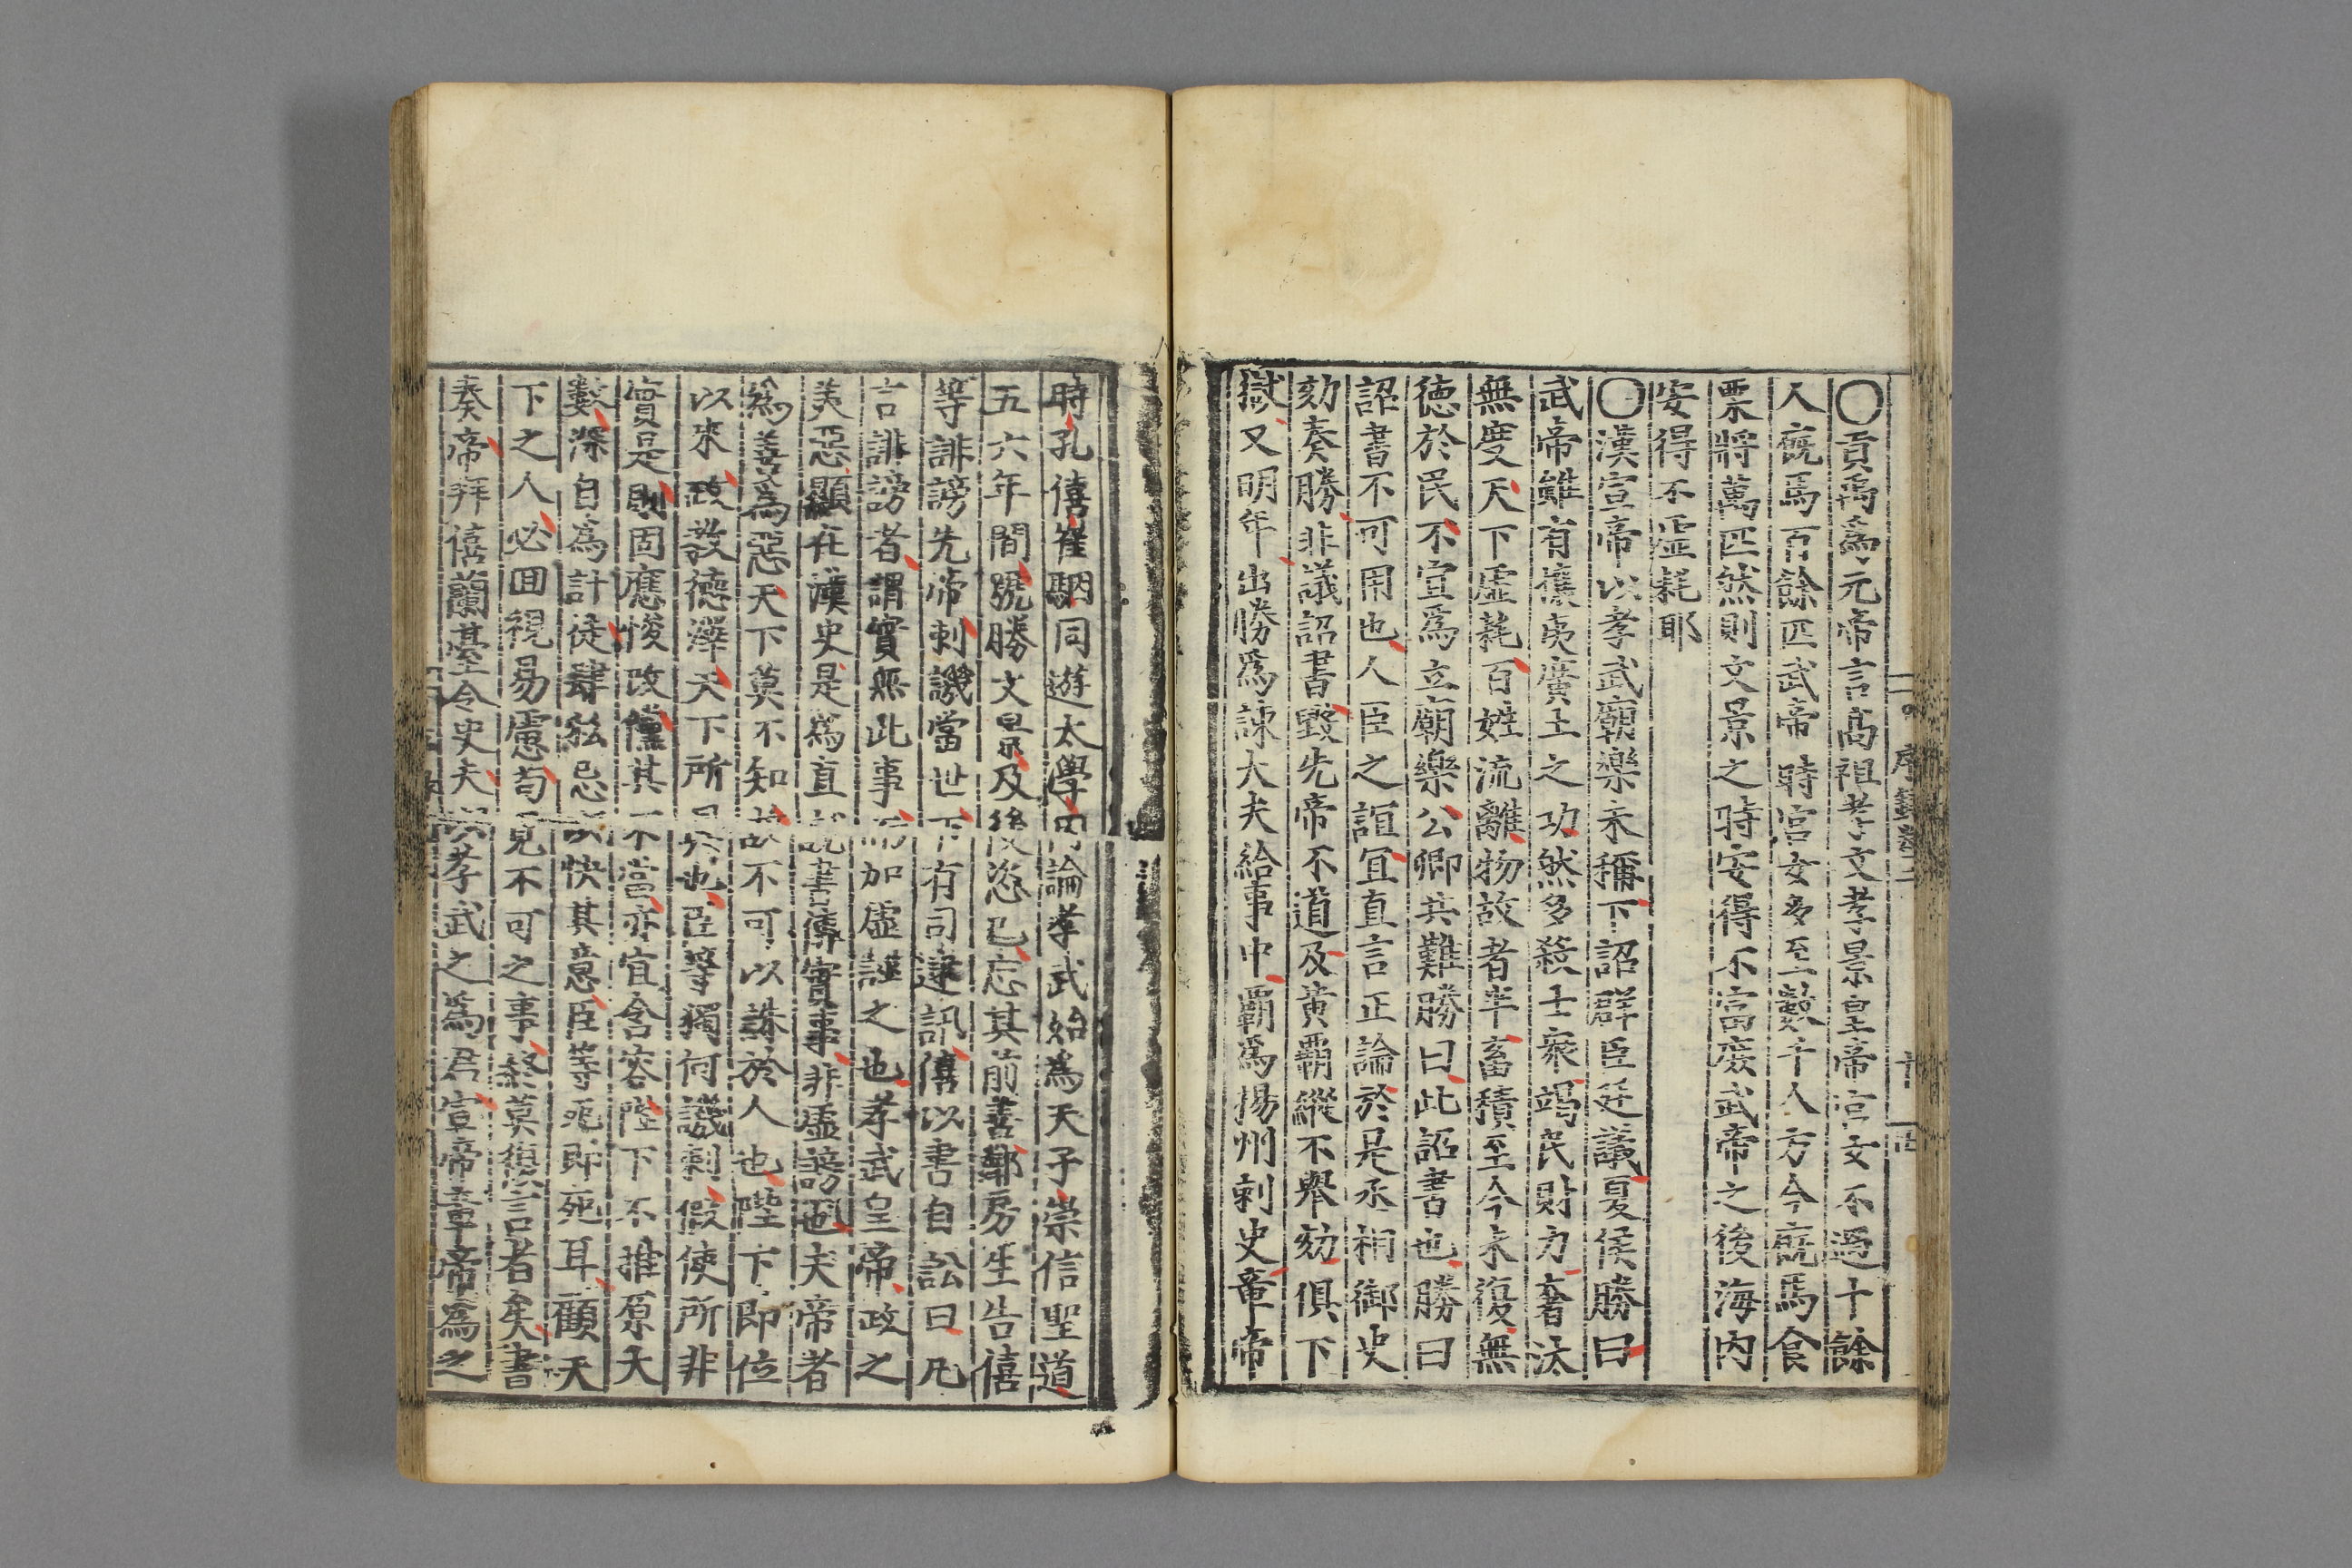 〇貢禹爲元帝言高祖孝文孝景皇帝宮女不過十餘
人廐馬百餘匹武帝時宮女多至數千人方今廐馬食
粟將萬匹然則文景之時安得不富庶武帝之後海内
安得不虛耗耶
〇漢宣帝以孝武廟樂未稱下詔群臣廷議夏侯勝曰
武帝雖有攘夷廣土之功然多殺士衆竭民財力奢汰
無度天下虛耗百姓流離物故者半畜積至今未復無
德於民不宜爲立廟樂公卿共難勝曰此詔書也勝曰
詔書不可用也人臣之誼宜直言正論於是丞相御史
劾奏勝非議詔書毀先帝不道及黃霸縱不舉劾俱下
獄又明年出勝爲諫大夫給事中霸爲揚州刺史章帝
時孔僖崔駰同遊太學因論孝武始爲天子崇信聖道
五六年間號勝文景及後恣己忘其前善鄰房生告僖
等誹謗先帝刺譏當世下有司逮訊僖以書自訟曰凡
言誹謗者謂實無此事而加虛誣之也孝武皇帝政之
美惡顯在漢史是爲直說書傳實事非虛謗也夫帝者
爲善爲惡天下莫不知故不可以誅於人也陛下即位
以來政教德澤天下所具也臣等獨何譏刺假使所非
實是則固應悛改儻其不當亦宜含容陛下不推原大
數深自爲計徒肆私忌以快其意臣等死即死耳顧天
下之人必囬視易慮苟見不可之事終莫復言者矣書
奏帝拜僖蘭臺令史夫以孝武之爲君宣帝章帝爲之